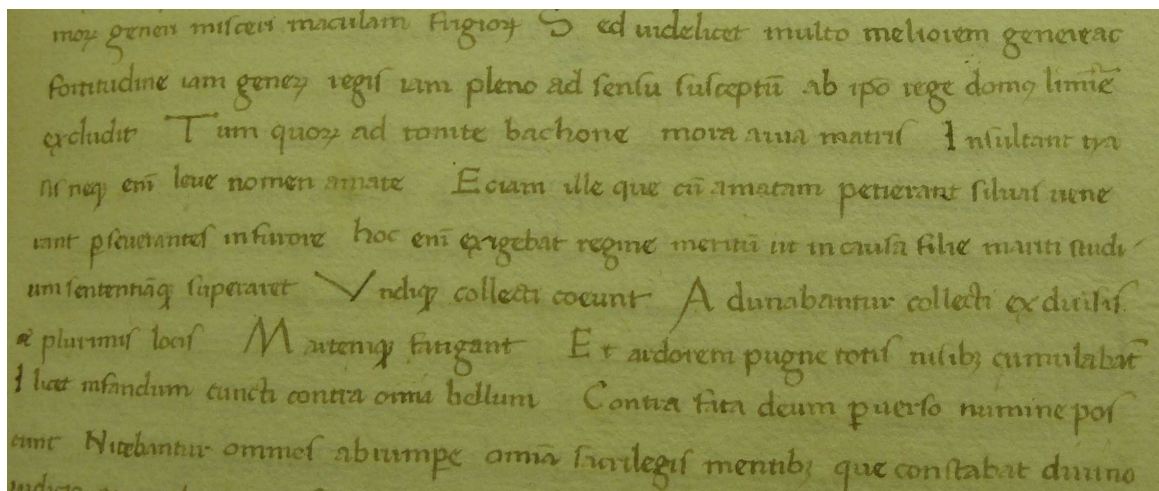 moꝝ generi misceri maculam frigioꝝ Sed uidelicet multo meliorem genere ac
fortitudine iam geneꝝ regis iam pleno ad sensu susceptū ab ipo rege domꝰ limīe
excludit Tum quoꝝ ad tonite bachone mora auia matris Insultant tra
sis neqꝫ eni leue nomen amate Eciam ille que cū amatam petierant siluas uene
rant ꝑseuerantes in furore hoc eni exigebat regine meritū ut in causa filie mariti studi
um sententiāqꝫ superaret Vndiqꝫ collecti coeunt Adunabantur collecti ex diuisis
& plurimis locis Martemqꝫ fatigant Et ardorem pugne totis nisibꝫ cumulabāt
Ilicet infandum cuncti contra omia bellum Contra fata deum ꝑuerso numine pos
cunt Nitebantur omnes abrumꝑe omīa sacrilegis mentibꝫ que constabat diuino
iudicio